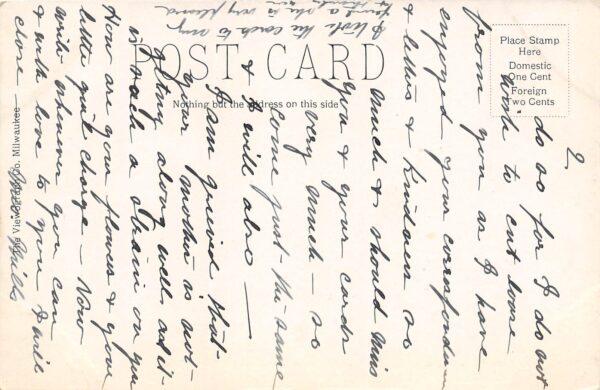 POST CARD
Nothing but the address on this side
Place Stamp
Here
Domestic
One Cent
Foreign
Two Cents
Co. Milwaukee
2
do so for I do not
wish to cut loose
from you as I have
enjoyed your
& letters & kindness so
much & should miss
you & your cards
very much - so
come just the same
& I will also
I am grieved that
your mother is not
getting along well as it
is such a strain on you
How are you flowers & your
little girl change - Now
write whenever you can
& with love to you I will
close -
I wish the cards to my
friend & she is very pleased